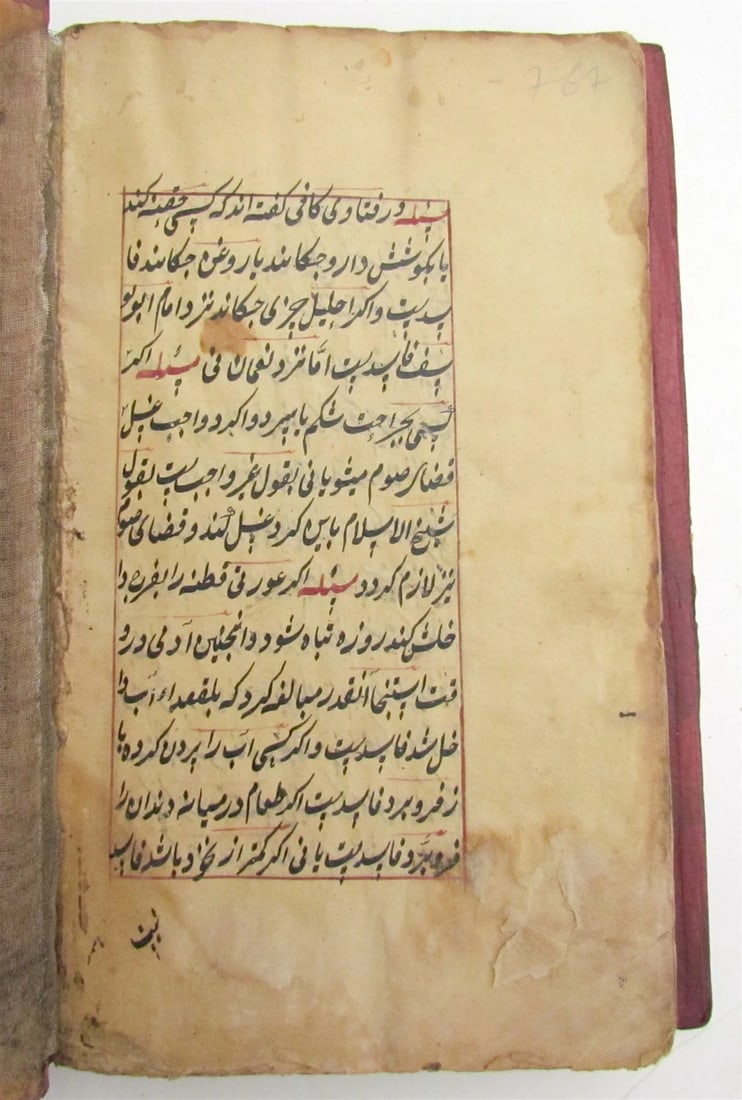 767
مسئله در فتاوی کافی گفته اند که کسی حقنه کند
یا بگوشش دارو چکانند یا روغن چکانند فا
سدیست و اکر احلیل چیزی چکاند نزد امام ابو یو
سف فاسدیست اما نزد نعمان نی مسئله اکر
کسی بجراحت شکم یا سر دوا کرد واجب غسل
قضای صوم میشود یا نی بقول غیر واجبست بقول
شیخ الاسلام باین کرد غسل کند و قضای صوم
نیز لازم کردد مسئله اکر عورتی قطنه را بفرج دا
خلش کند روزه تباه شود و انچنین آدمی درو
قت استنجا آنقدر مبالغه کرد که بلقعداء آب دا
خل شد فاسدیست و اکر کسی آب را بردن کرده با
ز فرو برد فاسدیست اکر طعام در میانه دندان را
فرو برد فاسدیست یا نی اکر کمتر از نخود باشد فاسد